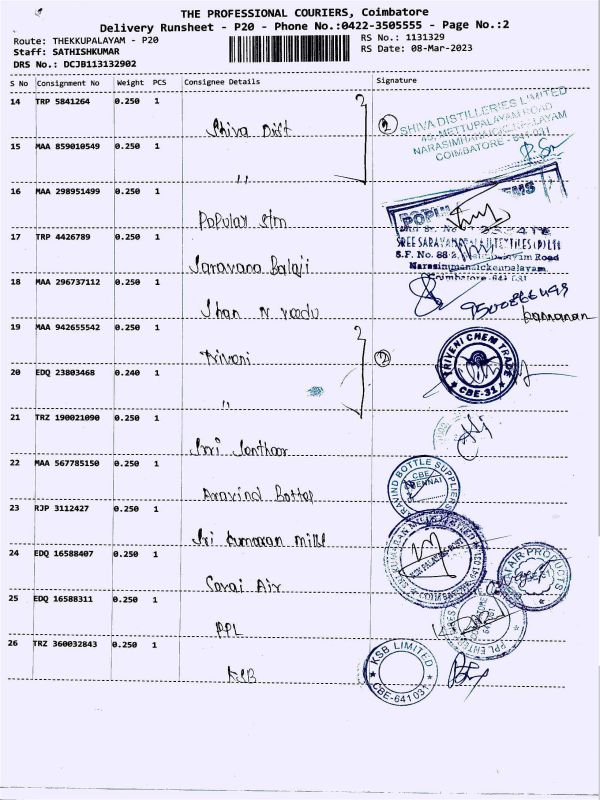 THE PROFESSIONAL COURIERS, Coimbatore
Delivery Runsheet - P20 - Phone No.:0422-3505555 - Page No.:2
Route: THEKKUPALAYAM - P20
Staff: SATHISHKUMAR
DRS No.: DCJB113132902
RS No.: 1131329
RS Date: 08-Mar-2023
S No Consignment No Weight PCS Consignee Details Signature
14 TRP 5841264 0.250 1
Shiva Dist
2
SHIVA DISTILLERIES LIMITED
METTUPALAYAM ROAD
COIMBATORE - 641 031
15 MAA 859010549 0.250 1
,,
16 MAA 298951499 0.250 1
Popular
17 TRP 4426789 0.250 1
Saravana Balaji
S.F. No. 88/2
Narasimanaickenpalayam
18 MAA 296737112 0.250 1
19 MAA 942655542 0.250 1
Triveni
2
TRIVENI CHEM TRADE
CBE-31
20 EDQ 23803468 0.240 1
,,
21 TRZ 190021090 0.250 1
22 MAA 567785150 0.250 1
Aravind Bottle
ARAVIND BOTTLE SUPPLIERS
23 RJP 3112427 0.250 1
Sri Kumaran Mills
24 EDQ 16588407 0.250 1
AIR PRODUCTS
25 EDQ 16588311 0.250 1
PPL
26 TRZ 360032843 0.250 1
KSB
KSB LIMITED
CBE-641 031